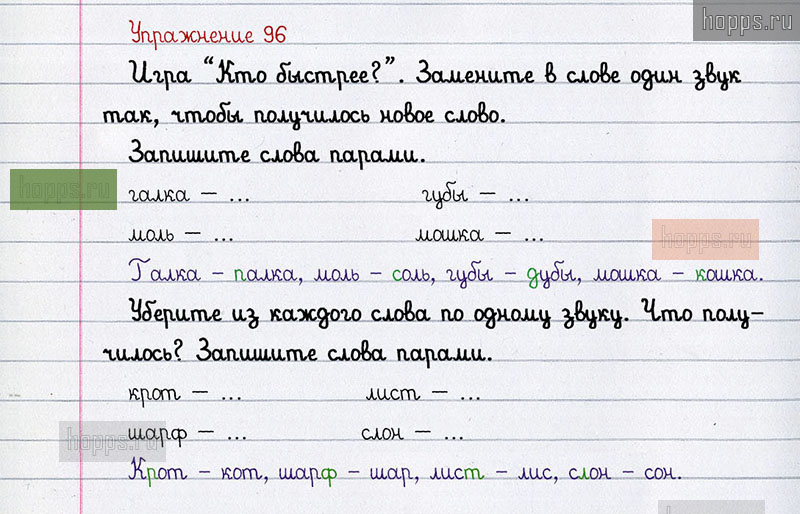 hopps.ru
Упражнение 96
Игра "Кто быстрее?". Замените в слове один звук
так, чтобы получилось новое слово.
Запишите слова парами.
hopps.ru
галка – ... губы – ...
моль – ... мошка – ...
hopps.ru
Галка – палка, моль – соль, губы – дубы, мошка – кошка.
Уберите из каждого слова по одному звуку. Что полу-
чилось? Запишите слова парами.
крот – ... лист – ...
шарф – ... слон – ...
hopps.ru
Крот – кот, шарф – шар, лист – лис, слон – сон.
hopps.ru